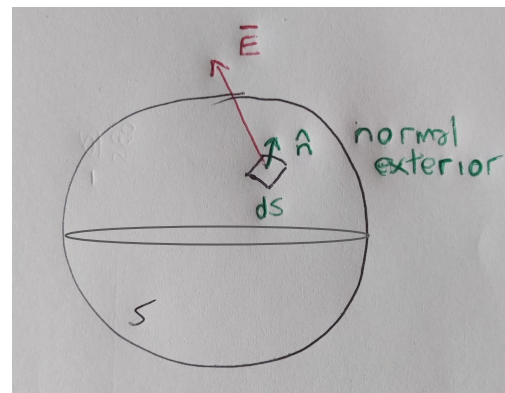 E̅
n̂
normal
exterior
dS
S